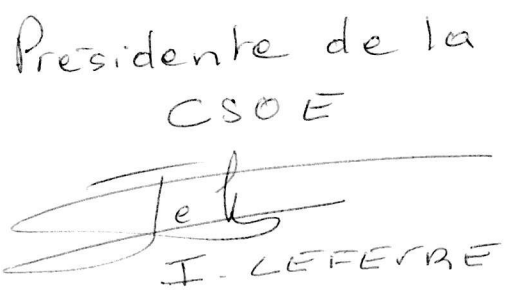 Présidente de la
CSOE
I. LEFEVRE